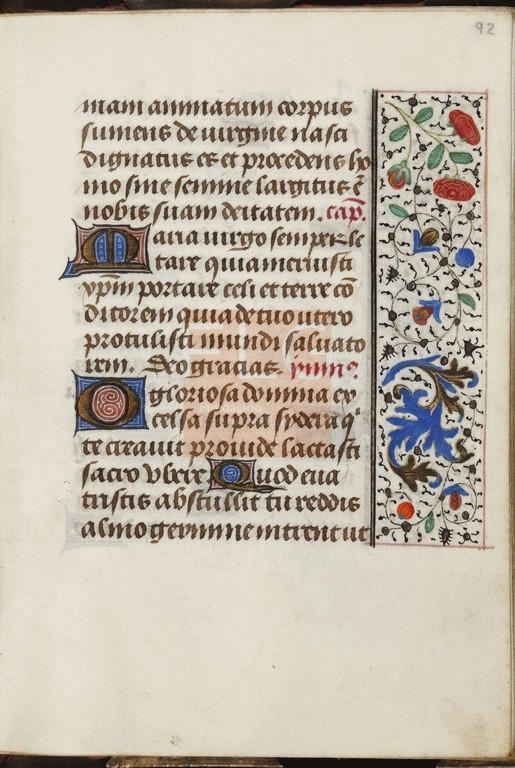 92
mam animatum corpus
sumens de virgine nasci
dignatus es et procedens ho
mo sine semine largitus ē
nobis suam deitatem. cap̄.
Maria virgo semper le
tare quia meruisti
xp̄m portare celi et terre cō
ditorem quia de tuo utero
protulisti mundi saluato
rem. Deo gracias. ymn⁹
O gloriosa domina ex
celsa supra sydera q'
te creauit prouide lactasti
sacro vbere Quod eua
tristis abstullit tu reddis
almo germine intrent ut